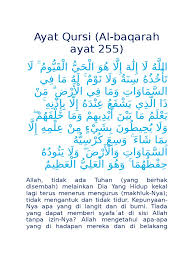 Ayat Qursi (Al-baqarah
ayat 255)
اللَّهُ لَا إِلَٰهَ إِلَّا هُوَ الْحَيُّ الْقَيُّومُ ۚ لَا
تَأْخُذُهُ سِنَةٌ وَلَا نَوْمٌ ۚ لَهُ مَا فِي
السَّمَاوَاتِ وَمَا فِي الْأَرْضِ ۗ مَنْ
ذَا الَّذِي يَشْفَعُ عِنْدَهُ إِلَّا بِإِذْنِهِ ۚ
يَعْلَمُ مَا بَيْنَ أَيْدِيهِمْ وَمَا خَلْفَهُمْ ۖ
وَلَا يُحِيطُونَ بِشَيْءٍ مِنْ عِلْمِهِ إِلَّا
بِمَا شَاءَ ۚ وَسِعَ كُرْسِيُّهُ
السَّمَاوَاتِ وَالْأَرْضَ ۖ وَلَا يَئُودُهُ
حِفْظُهُمَا ۚ وَهُوَ الْعَلِيُّ الْعَظِيمُ
Allah, tidak ada Tuhan (yang berhak
disembah) melainkan Dia Yang Hidup kekal
lagi terus menerus mengurus (makhluk-Nya);
tidak mengantuk dan tidak tidur. Kepunyaan-
Nya apa yang di langit dan di bumi. Tiada
yang dapat memberi syafa'at di sisi Allah
tanpa izin-Nya? Allah mengetahui apa-apa
yang di hadapan mereka dan di belakang